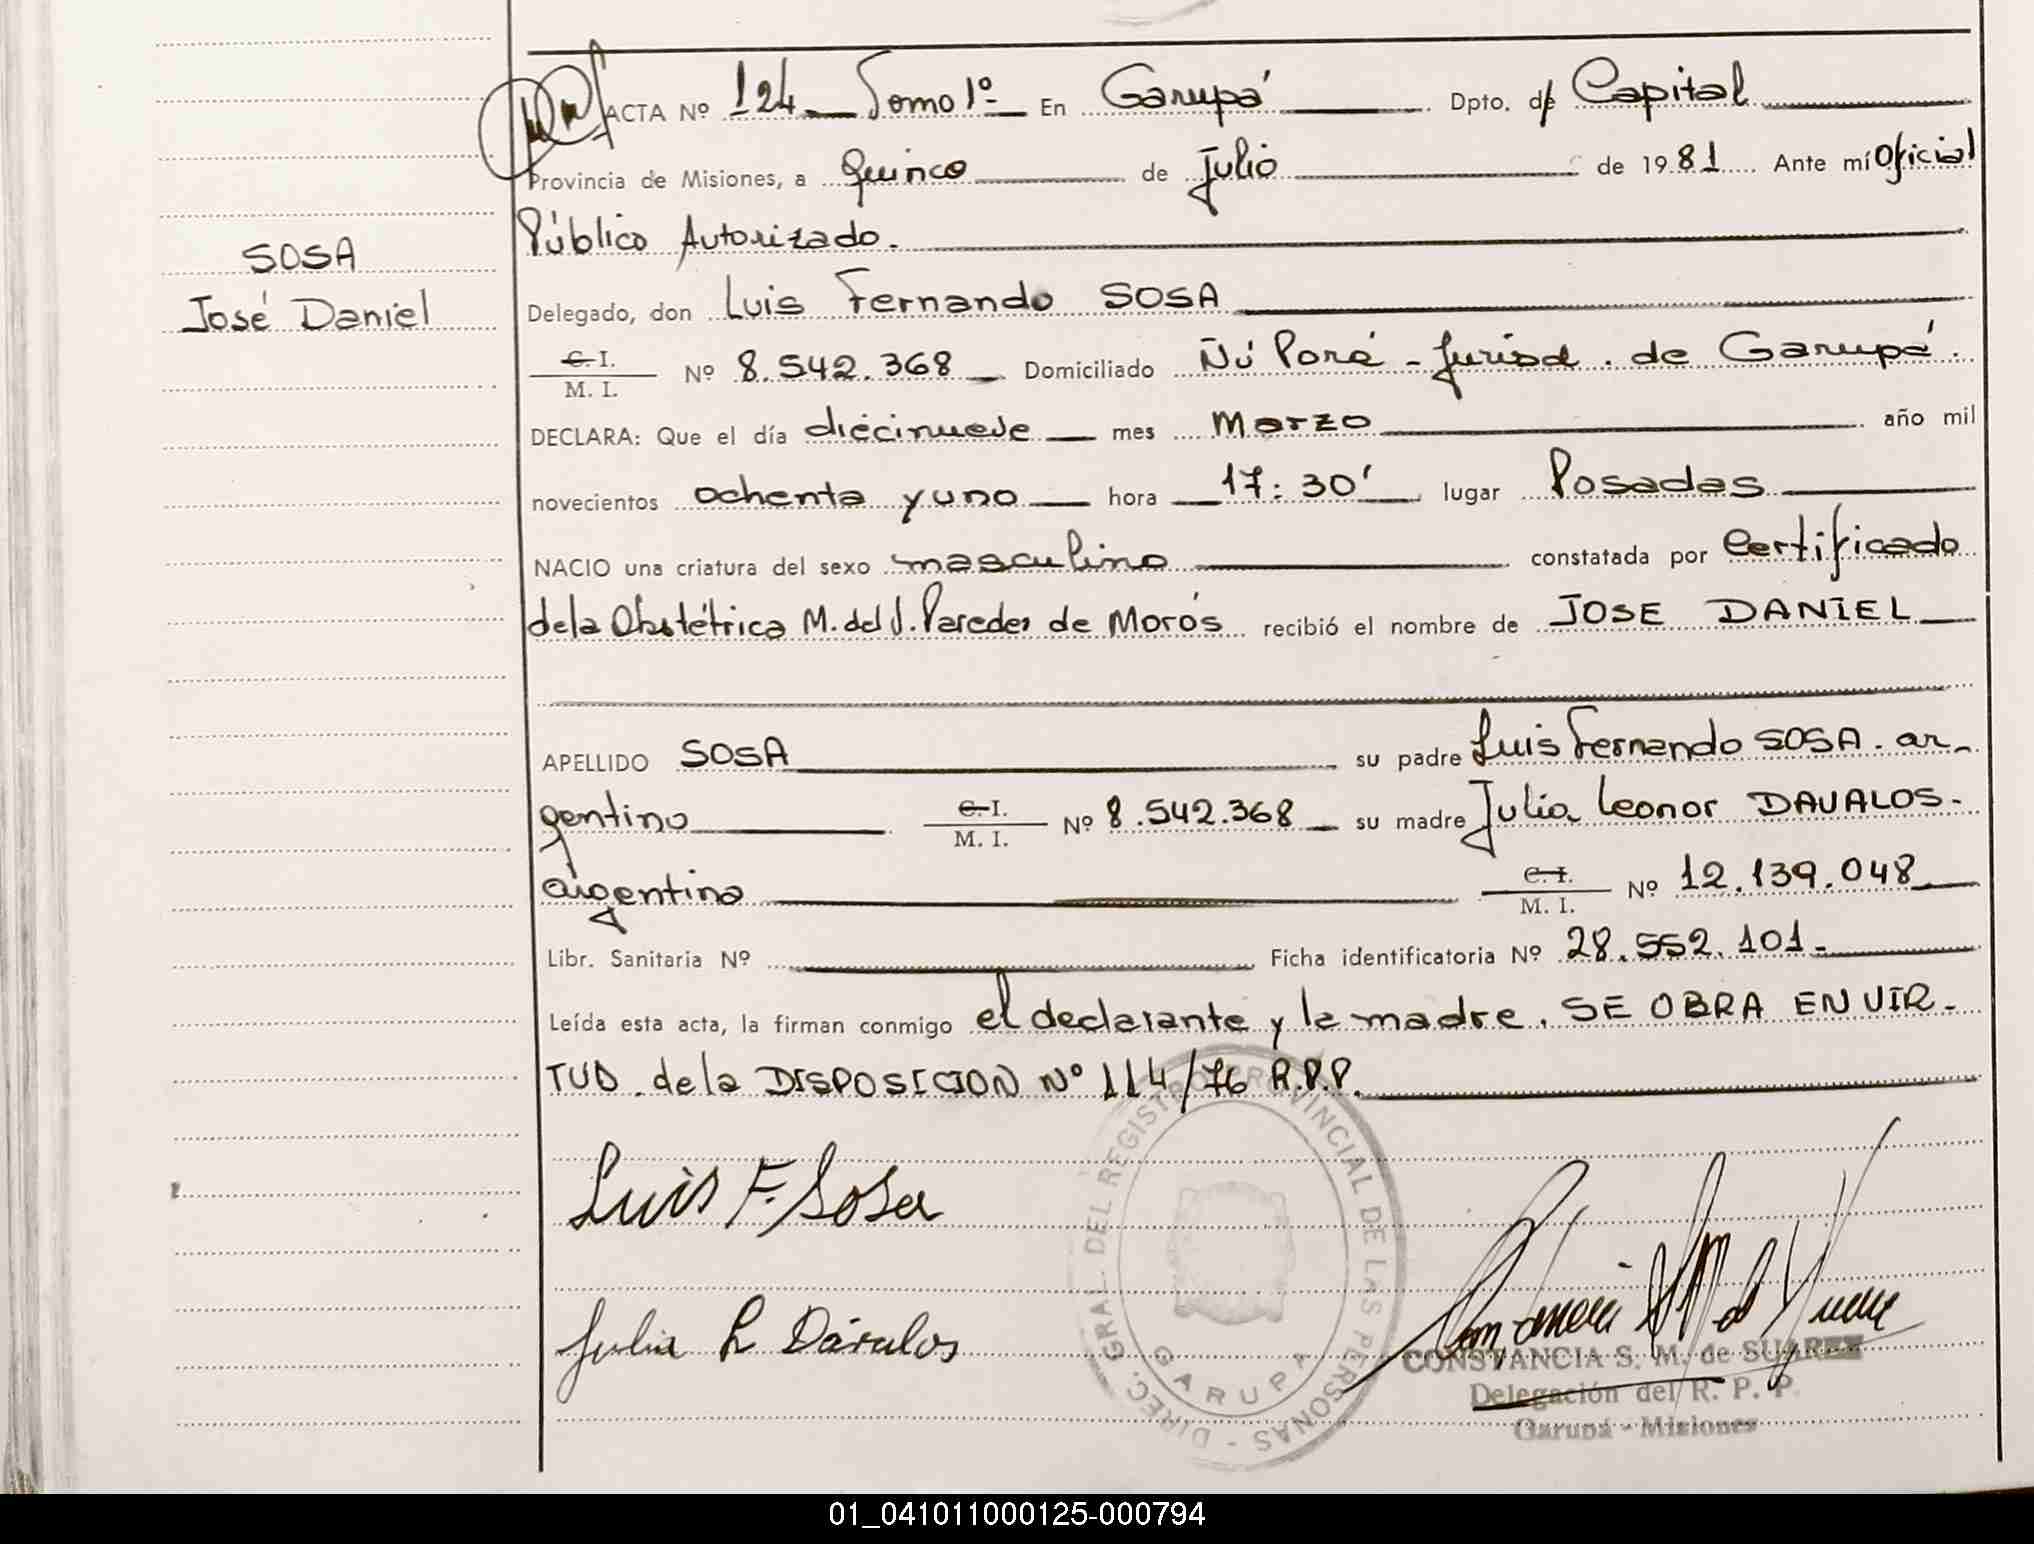 ACTA Nº 124 Tomo 1º En Garupá Dpto. de Capital
Provincia de Misiones, a Quince de Julio de 1981 Ante mí Oficial
Público Autorizado.
SOSA
José Daniel
Delegado, don Luis Fernando SOSA
C.I.
M. I.
Nº 8.542.368 Domiciliado Ñú Porá - Jurisd. de Garupá.
DECLARA: Que el día diecinueve mes Marzo año mil
novecientos ochenta y uno hora 17:30' lugar Posadas
NACIO una criatura del sexo masculino constatada por Certificado
de la Obstétrica M. del J. Paredes de Morós recibió el nombre de JOSE DANIEL
APELLIDO SOSA su padre Luis Fernando SOSA. ar-
gentino C.I.
M. I.
Nº 8.542.368 su madre Julia Leonor DAVALOS-
argentina C.I.
M. I.
Nº 12.139.048
Libr. Sanitaria Nº Ficha identificatoria Nº 28.552.101-
Leída esta acta, la firman conmigo el declarante y la madre. SE OBRA EN VIR-
TUD de la DISPOSICION Nº 114/76 R.P.P.
Luis F. Sosa
Julia L Dávalos
DIREC. GRAL. DEL REGISTRO PROVINCIAL DE LAS PERSONAS -
GARUPA
CONSTANCIA S. M. de SUAREZ
Delegación del R. P. P.
Garupá - Misiones
01_041011000125-000794